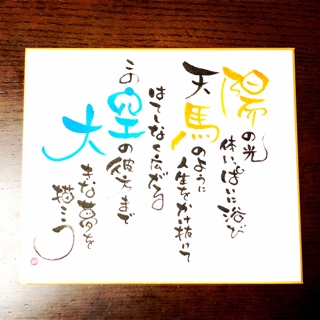 陽の光
体いっぱいに浴び
天馬のように
人生をかけ抜けて
はてしなく広がる
この空の彼方まで
大きな夢を
描こう